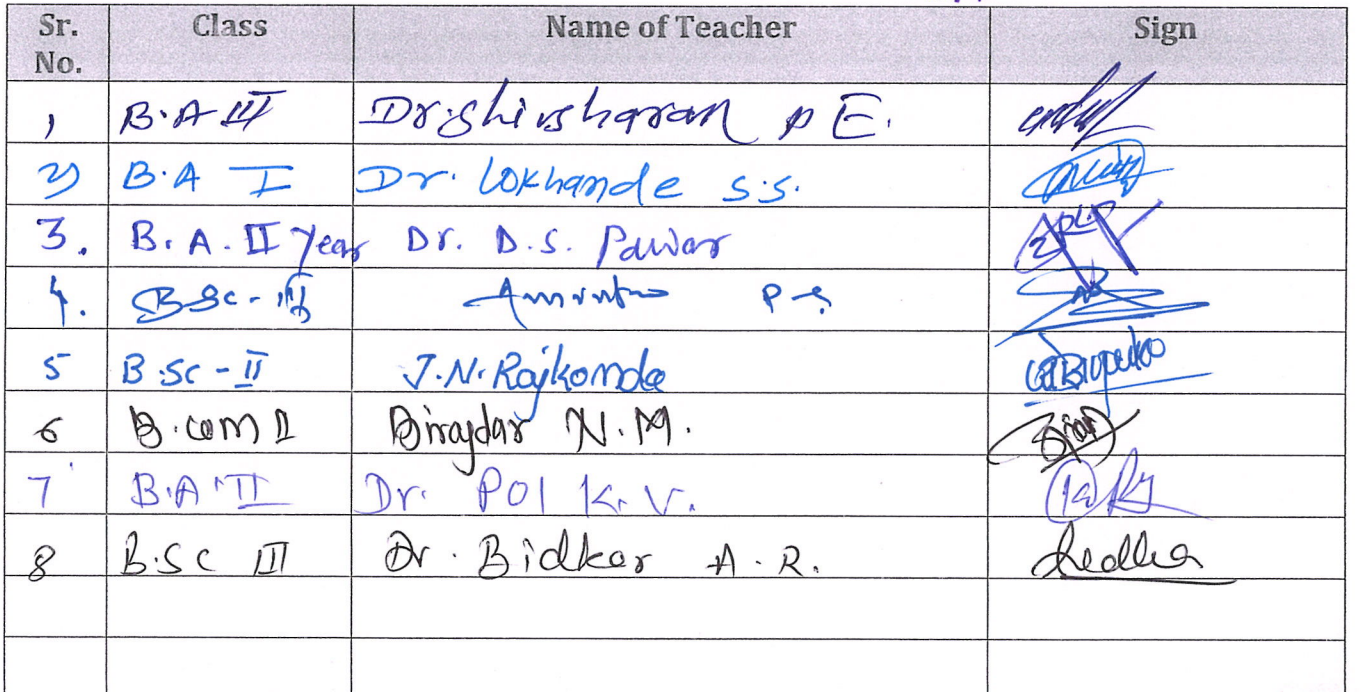 Sr. No. Class Name of Teacher Sign
1 B.A III Dr. Shivsharan P E.
2) B.A I Dr. Lokhande S.S.
3. B.A. II Year Dr. D.S. Pawar
4. BSc - III P.S
5 B.Sc - II J.N. Rajkonda
6 B.com I Birajdar N.M.
7 B.A II Dr. Pol K.V.
8 B.SC III Dr. Bidkar A.R.